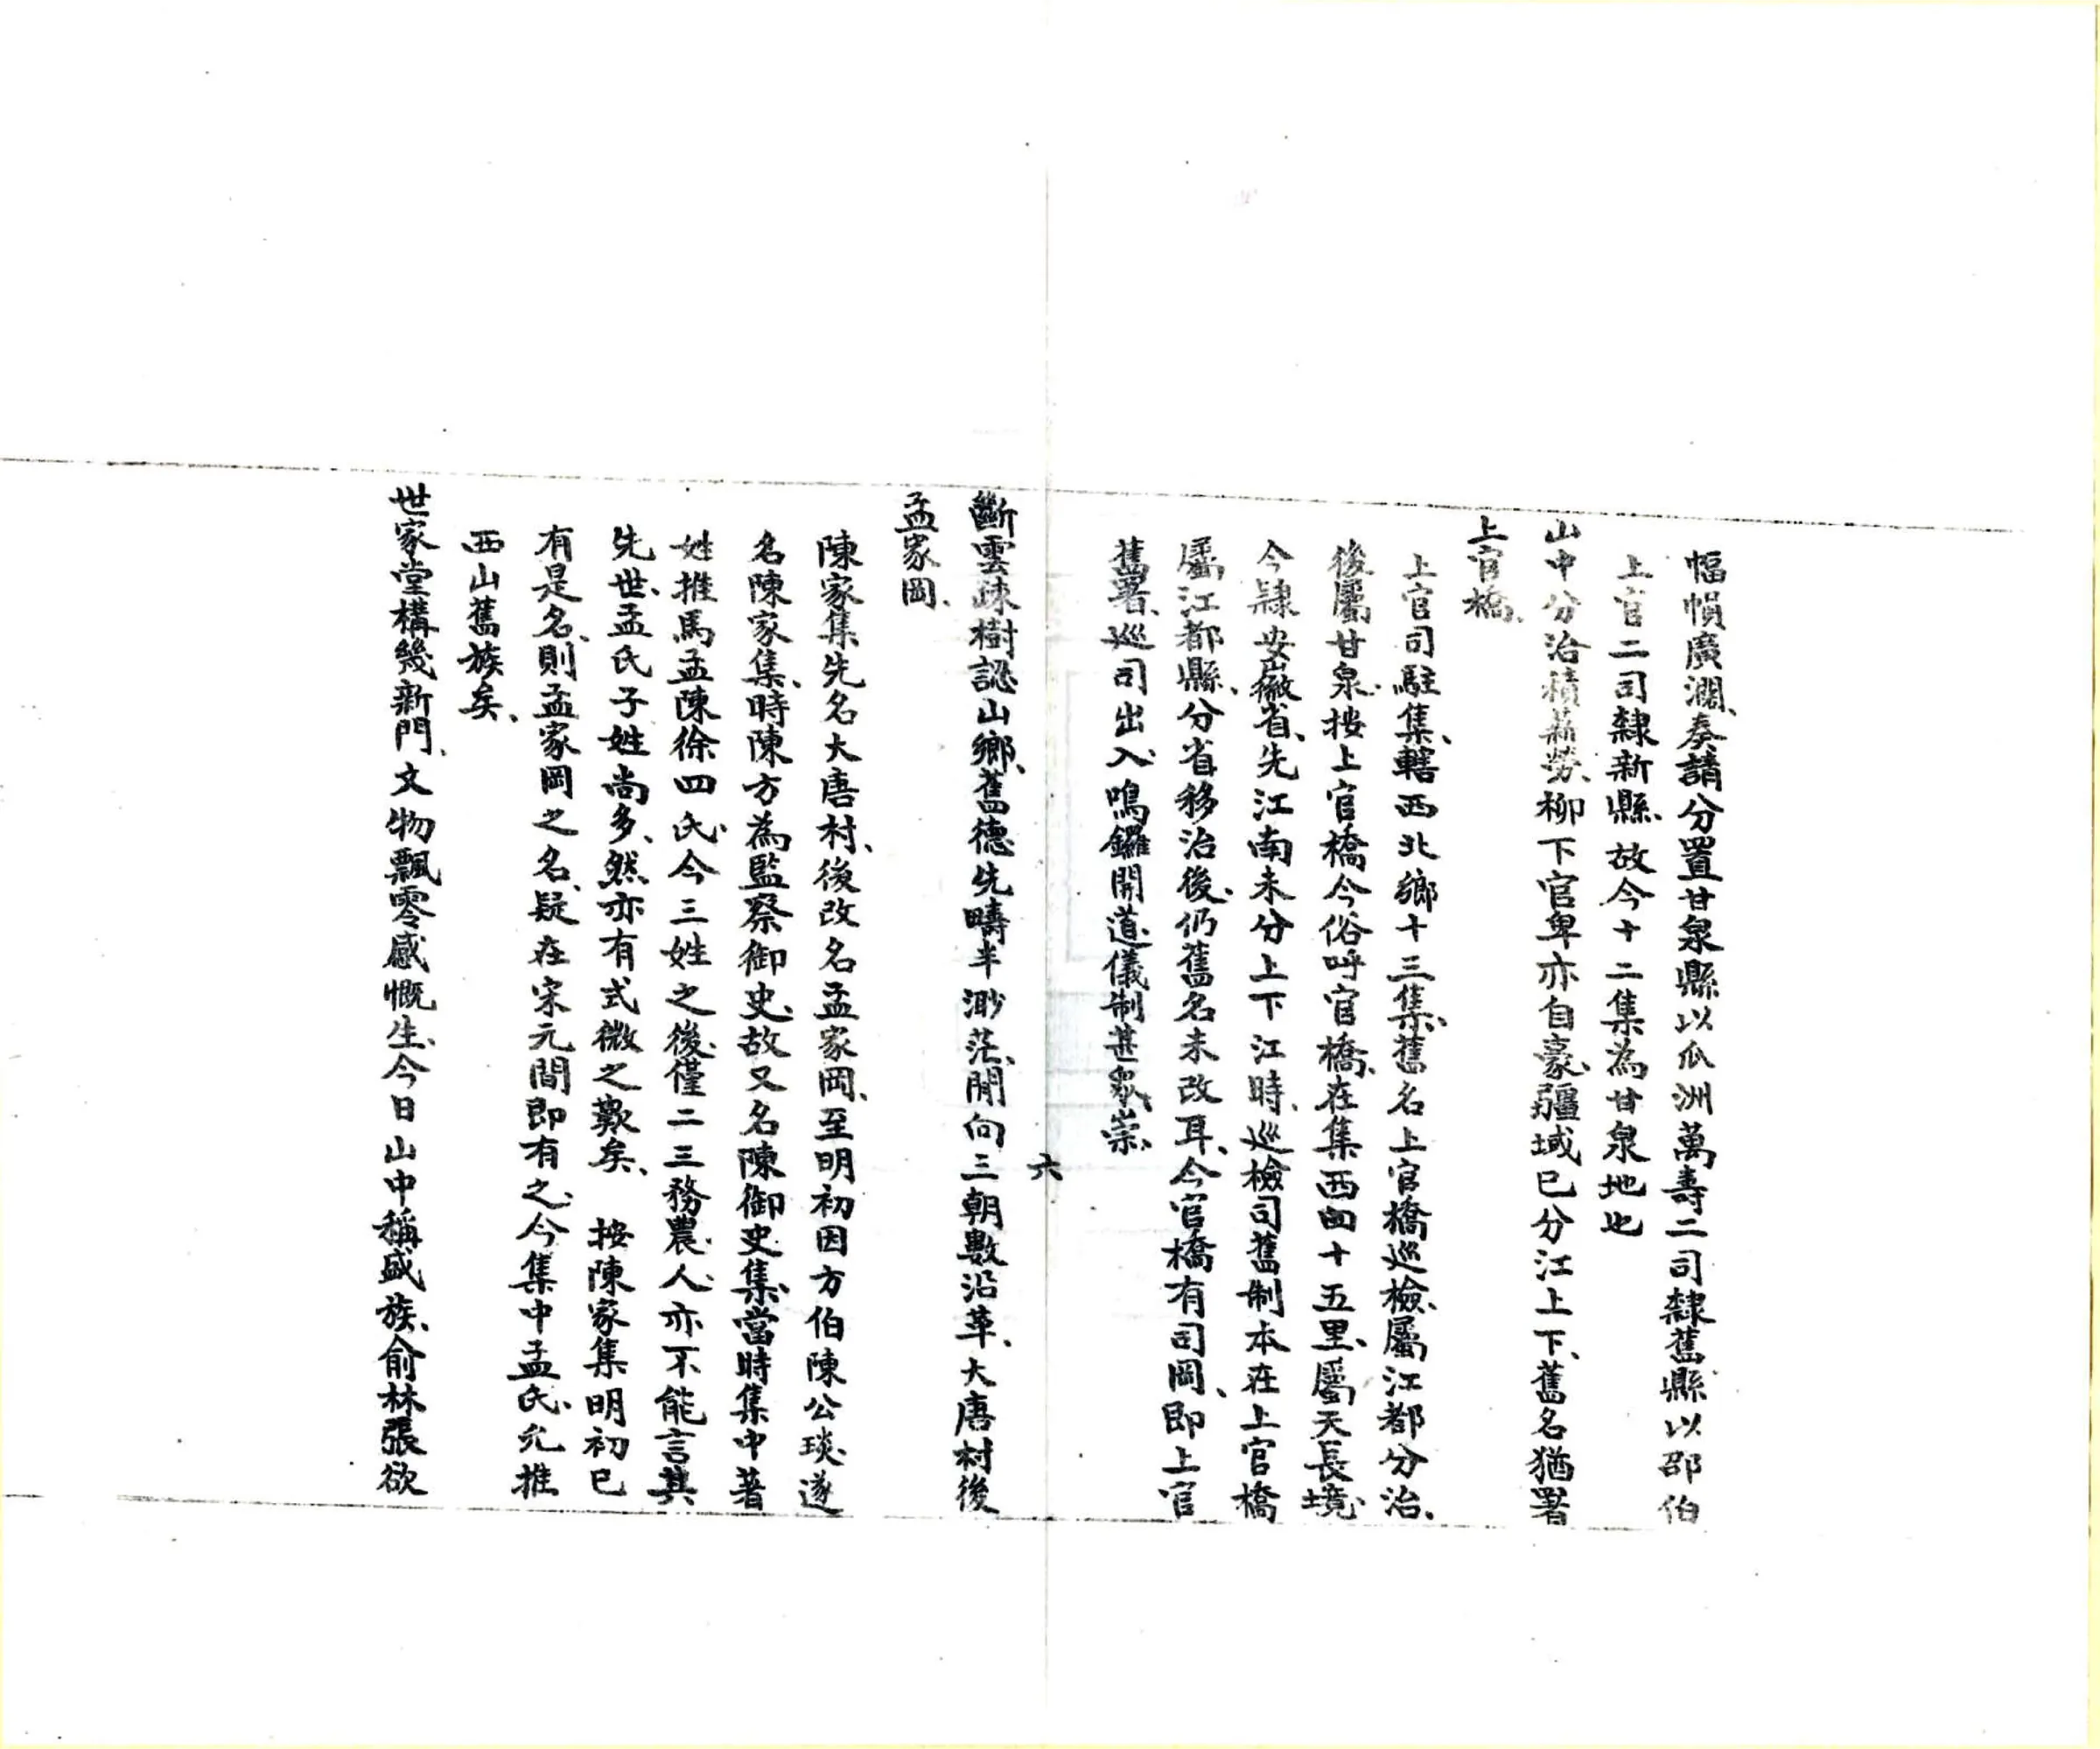 幅幀廣濶、奏請分置甘泉縣以瓜洲萬壽二司隸舊縣以邵伯
上官二司隸新縣、故今十二集為甘泉地也
山中分治積薪勞、柳下官卑亦自豪、疆域已分江上下、舊名猶署
上官橋、
上官司駐集、轄西北鄉十三集、舊名上官橋巡檢、屬江都分治、
後屬甘泉、按上官橋今俗呼官橋、在集西四十五里、屬天長境、
今隸安徽省、先江南未分上下江時、巡檢司舊制本在上官橋
屬江都縣、分省移治後、仍舊名未改耳、今官橋有司岡、即上官
舊署、巡司出入鳴鑼開道、儀制甚眾崇、
六
斷雲疎樹認山鄉、舊德先疇半渺茫、閒向三朝數沿革、大唐村後
孟家岡、
陳家集先名大唐村、後改名孟家岡、至明初因方伯陳公琰、遂
名陳家集、時陳方為監察御史、故又名陳御史集、當時集中著
姓推馬孟陳徐四氏、今三姓之後、僅二三務農、人亦不能言其
先世、孟氏子姓尚多、然亦有式微之歎矣、　按陳家集明初已
有是名、則孟家岡之名、疑在宋元間即有之、今集中孟氏、允推
西山舊族矣、
世家堂構幾新門、文物飄零感慨生、今日山中稱盛族、俞林張欲